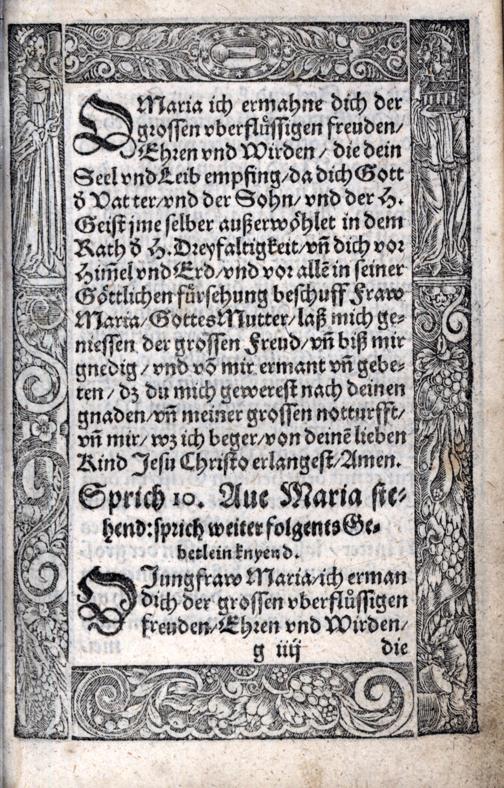 O Maria ich ermahne dich der
grossen vberflůssigen freuden/
Ehren vnd Wirden / die dein
Seel vnd Leib empfing/da dich Gott
d̕ Vatter/vnd der Sohn/ vnd der H.
Geist jme selber außerwöhlet in dem
Rath d̕ H. Dreyfaltigkeit/vn̄ dich vor
Him̄el vnd Erd/vnd vor allē in seiner
Göttlichen fürsehung beschuff Fraw
Maria/Gottes Mutter/laß mich ge-
niessen der grossen Freud/vn̄ biß mir
gnedig / vnd vō mir ermant vn̄ gebe-
ten / dz du mich gewerest nach deinen
gnaden/vn̄ meiner grossen notturfft/
vn̄ mir/ wz ich beger/von deinē lieben
Kind Jesu Christo erlangest/Amen.
Sprich 10. Aue Maria ste-
hend: sprich weiter folgents Ge-
betlein knyend.
O Jungfraw Maria/ich erman
dich der grossen vberflůssigen
freuden/Ehren vnd Wirden/
g iiij die